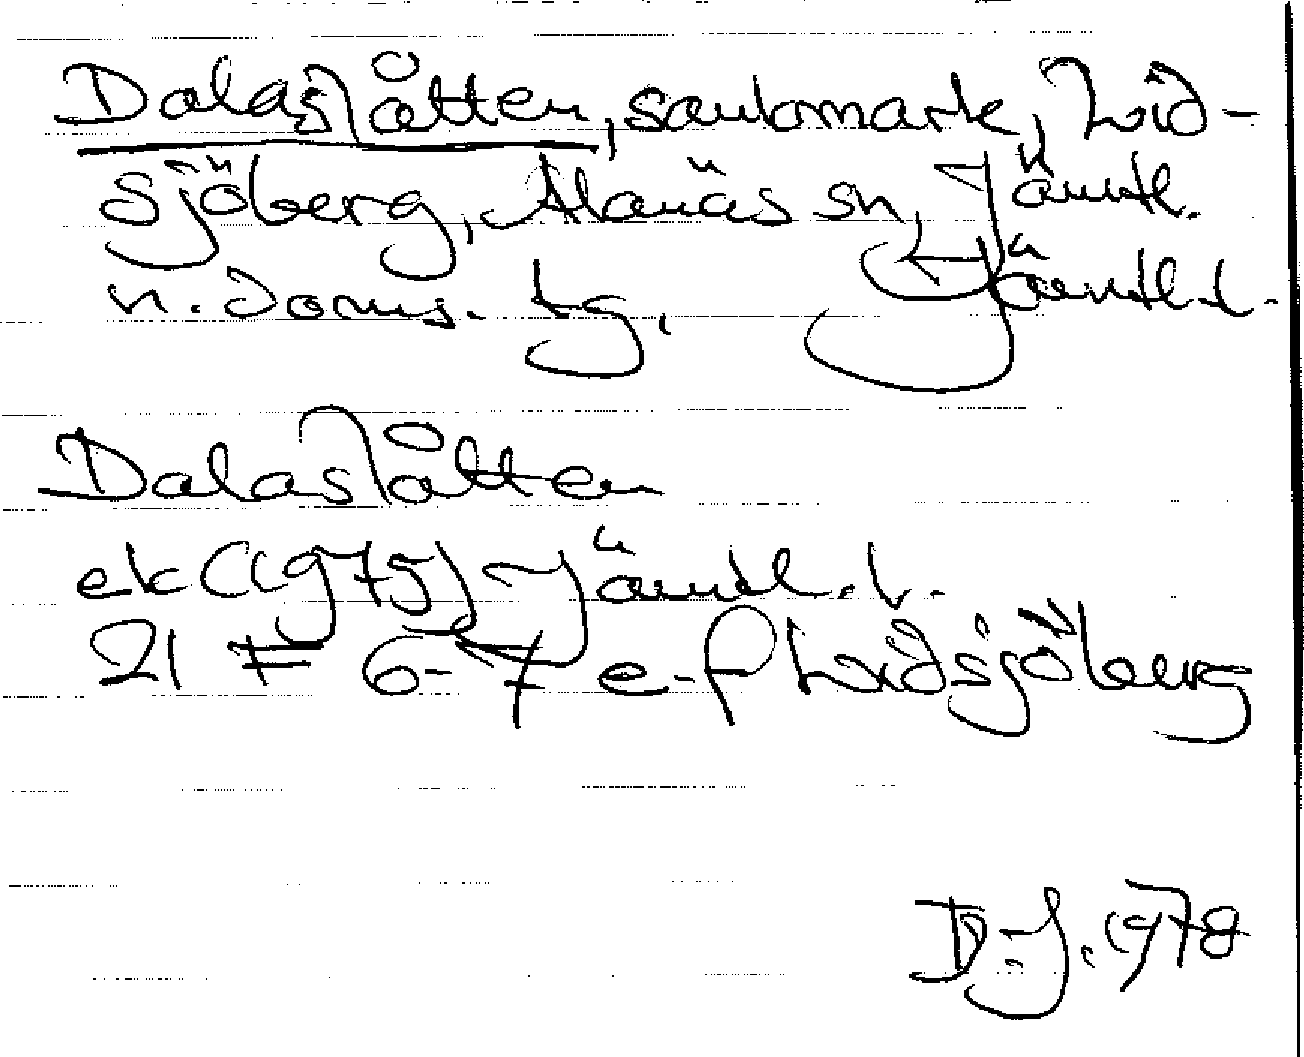 Dalaslåtten, sankmark, Lid-
sjöberg, Alanäs sn, Jämtl.
n. doms. tg, Jämtl. l.
Dalaslåtten
ek (1975) Jämtl. l.
21 F 6-7 e-f Lidsjöberg
D. J. 1978